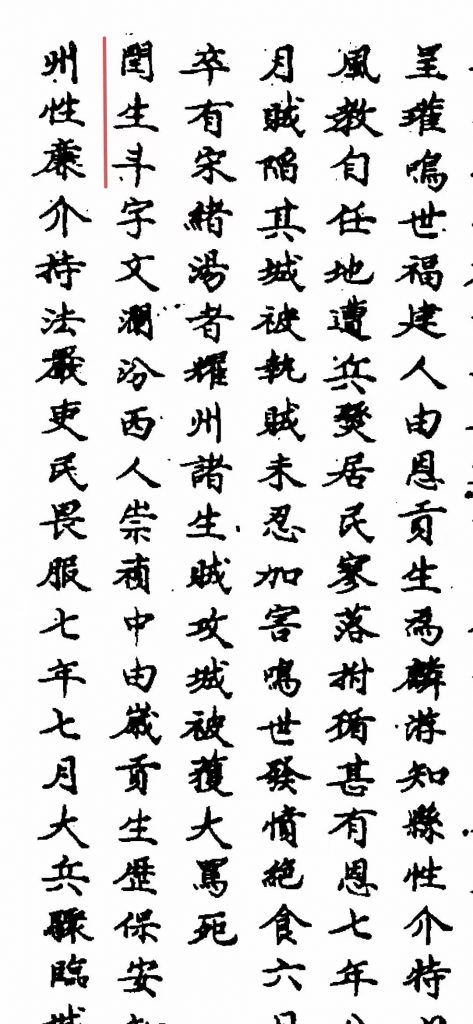 呈瓘鳴世福建人由恩貢生為麟游知縣性介特
風教自任地遭兵燹居民寥落拊循甚有恩七年八
月賊陷其城被執賊未忍加害鳴世發憤絶食六日
卒有宋緒湯者耀州諸生賊攻城被獲大罵死
閏生斗字文瀾汾西人崇禎中由歲貢生歷保安知
州性廉介持法嚴吏民畏服七年七月大兵驟臨城